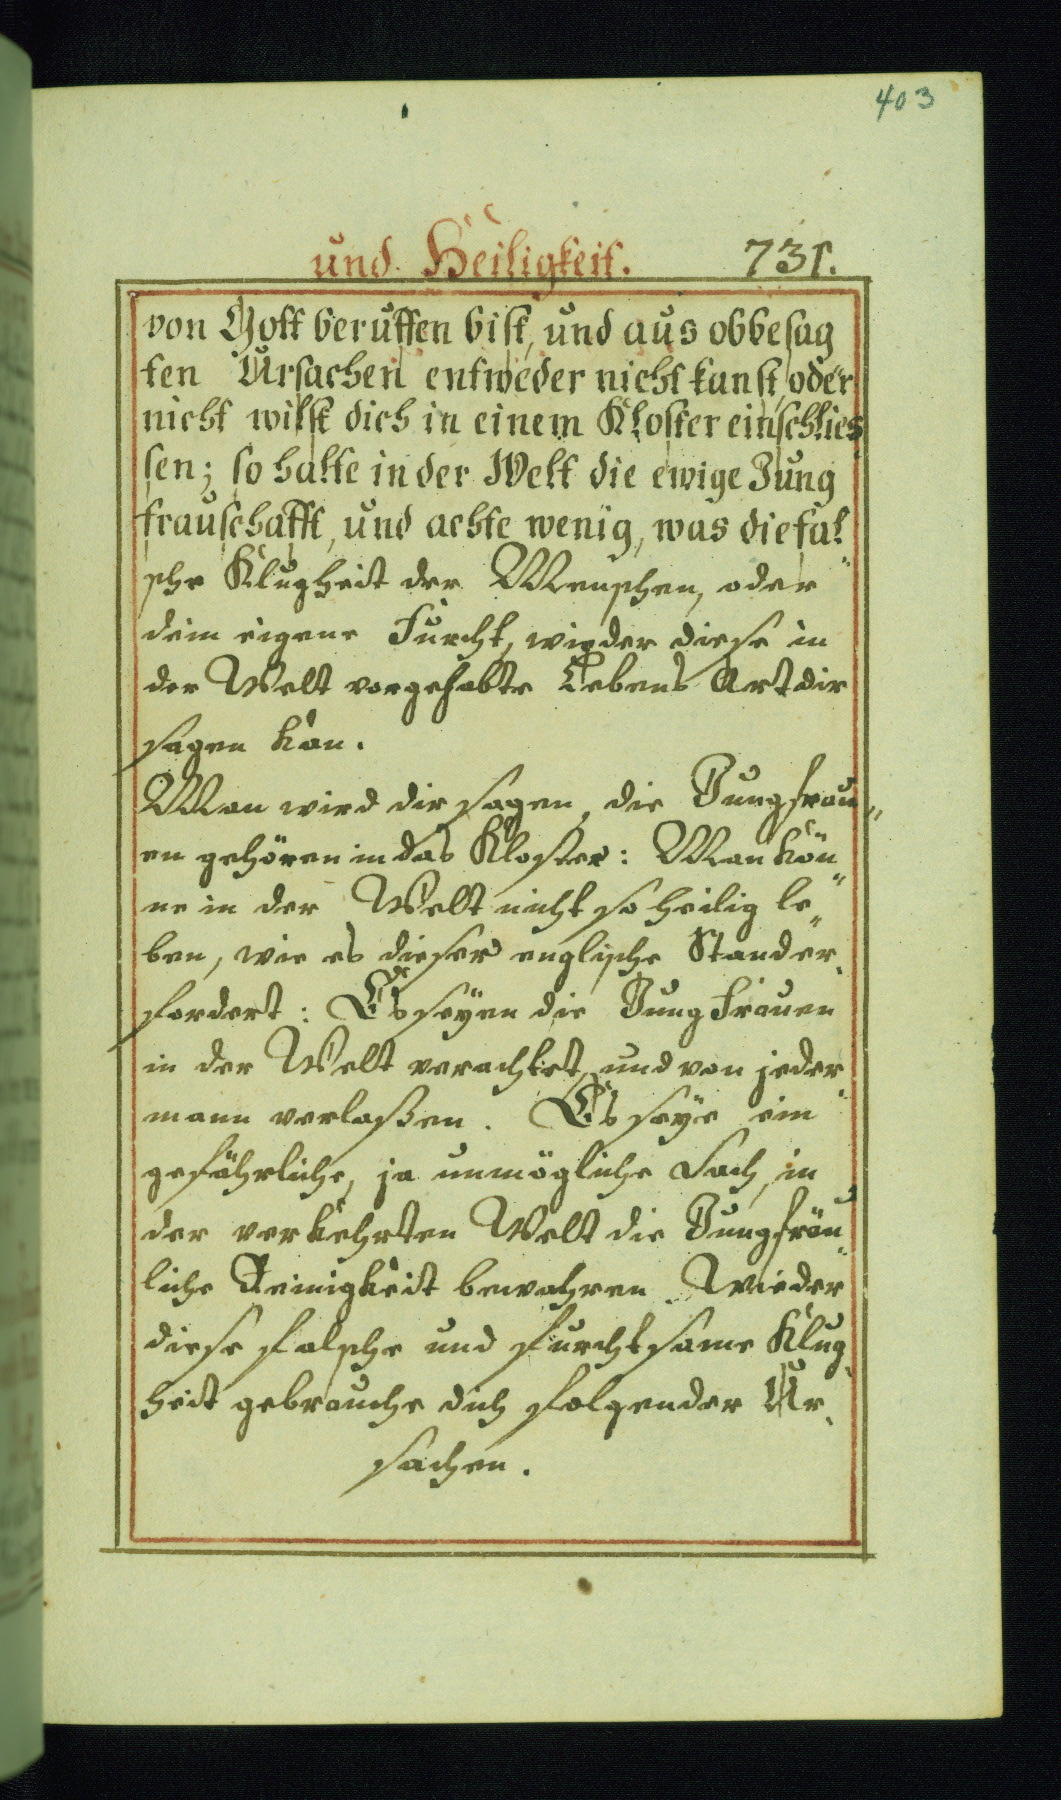 403
und Heiligkeit. 731.
von Gott beruffen bist, und aus obbesag
ten Ursachen entweder nicht kanst, oder
nicht wilst dich in einem Kloster einschlies
sen; so halte in der Welt die ewige Jung
frauschafft, und achte wenig, was die fal
sche Klugheit der Menschen, oder
dein eigene Furcht, wieder diese in
der Welt vorgehabte Lebens Art dir
sagen kan.
Man wird dir sagen, die Jungfrau„
en gehören in das Kloster: Man kön„
ne in der Welt nicht so heilig le„
ben, wie es dieser englische Stand er„
fordert: Es seyen die Jung Frauen
in der Welt verachtet, und von jeder„
mann verlaßen. Es seye ein
gefährliche, ja unmögliche Sach, in
der verkehrten Welt die Jungfräu„
liche Reinigkeit bewahren. Wieder
diese falsche und furchtsame Klug„
heit gebrauche dich folgender Ur„
sachen.